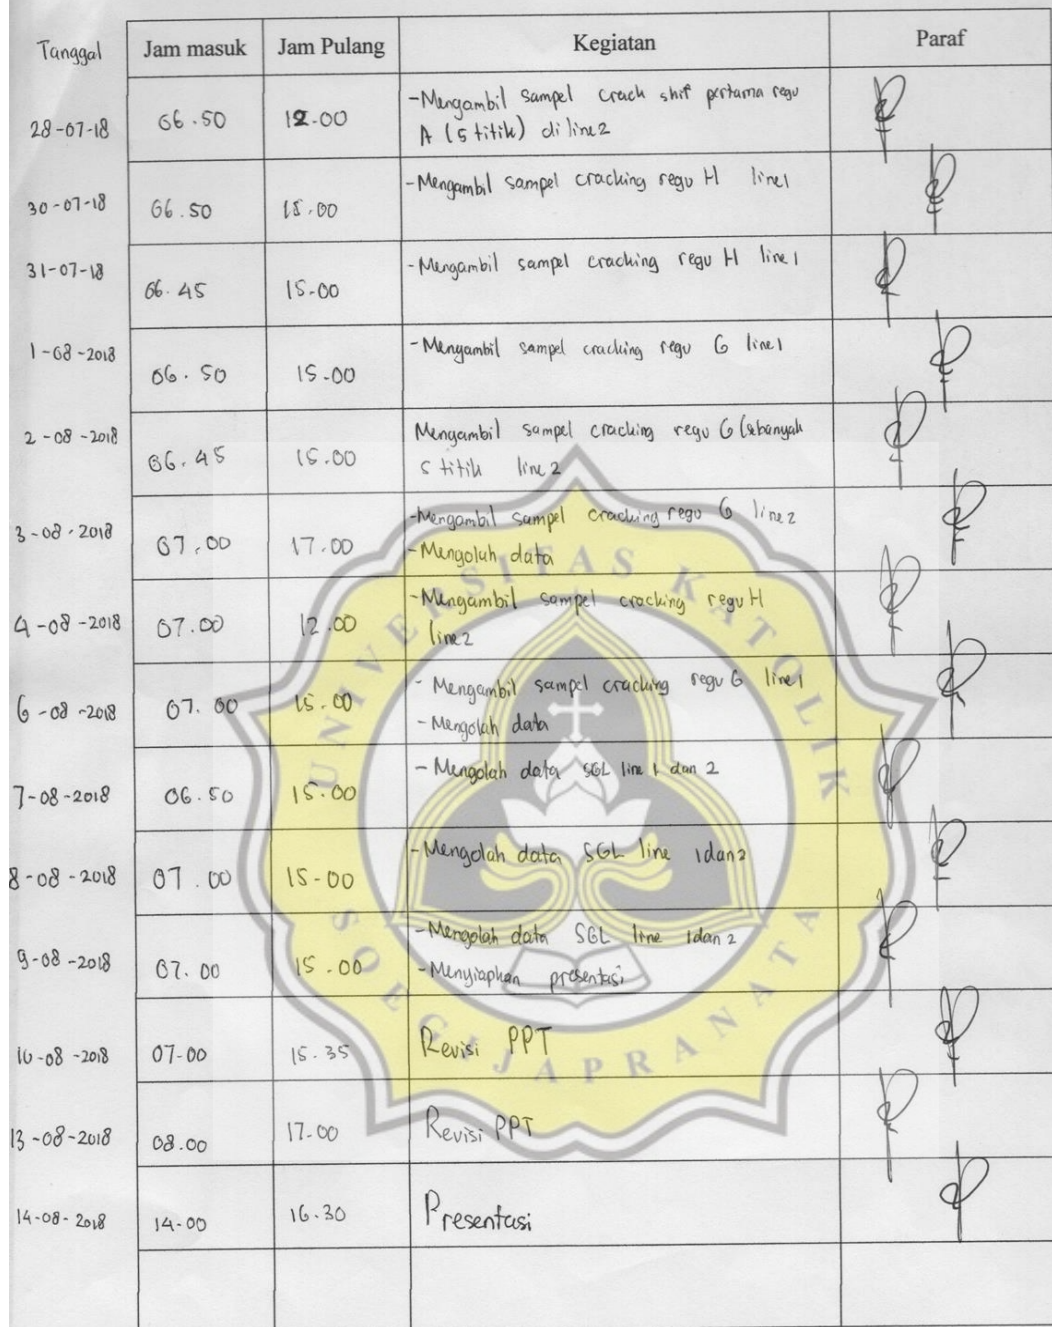 Tanggal Jam masuk Jam Pulang Kegiatan Paraf
28-07-18 06.50 12.00 -Mengambil sampel crack shif pertama regu
A (5 titik) di line 2
30-07-18 06.50 15.00 -Mengambil sampel cracking regu H line 1
31-07-18 06.45 15.00 -Mengambil sampel cracking regu H line 1
1-08-2018 06.50 15.00 -Mengambil sampel cracking regu G line 1
2-08-2018 06.45 15.00 Mengambil sampel cracking regu G (sebanyak
5 titik line 2
3-08-2018 07.00 17.00 -Mengambil sampel cracking regu G line 2
-Mengolah data
4-08-2018 07.00 12.00 -Mengambil sampel cracking regu H
line 2
6-08-2018 07.00 15.00 - Mengambil sampel cracking regu G line 1
- Mengolah data
7-08-2018 06.50 15.00 - Mengolah data SGL line 1 dan 2
8-08-2018 07.00 15-00 -Mengolah data SGL line 1 dan 2
9-08-2018 07.00 15.00 -Mengolah data SGL line 1 dan 2
-Menyiapkan presentasi
10-08-2018 07-00 15.35 Revisi PPT
13-08-2018 08.00 17.00 Revisi PPT
14-08-2018 14-00 16.30 Presentasi
UNIVERSITAS KATOLIK
SOEGIJAPRANATA